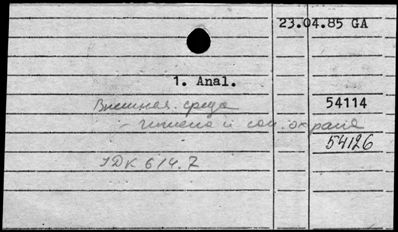 23.04.85 GA
1. Anal.
Внешняя среда 54114
- гигиена и сан. охрана
54126
УДК 614.7